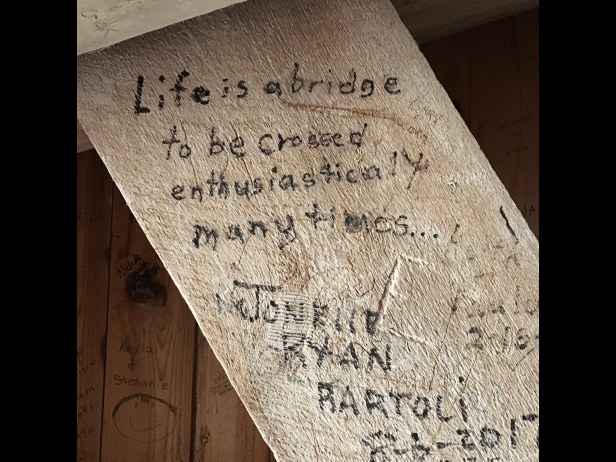 Life is a bridge
to be crossed
enthusiastically
many times...
JONELLE
RYAN
BARTOLI
8-6-2017
Kayla
+
Stephanie